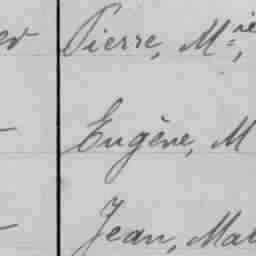 Pierre, M.ie,
Eugène, M
Jean, Ma